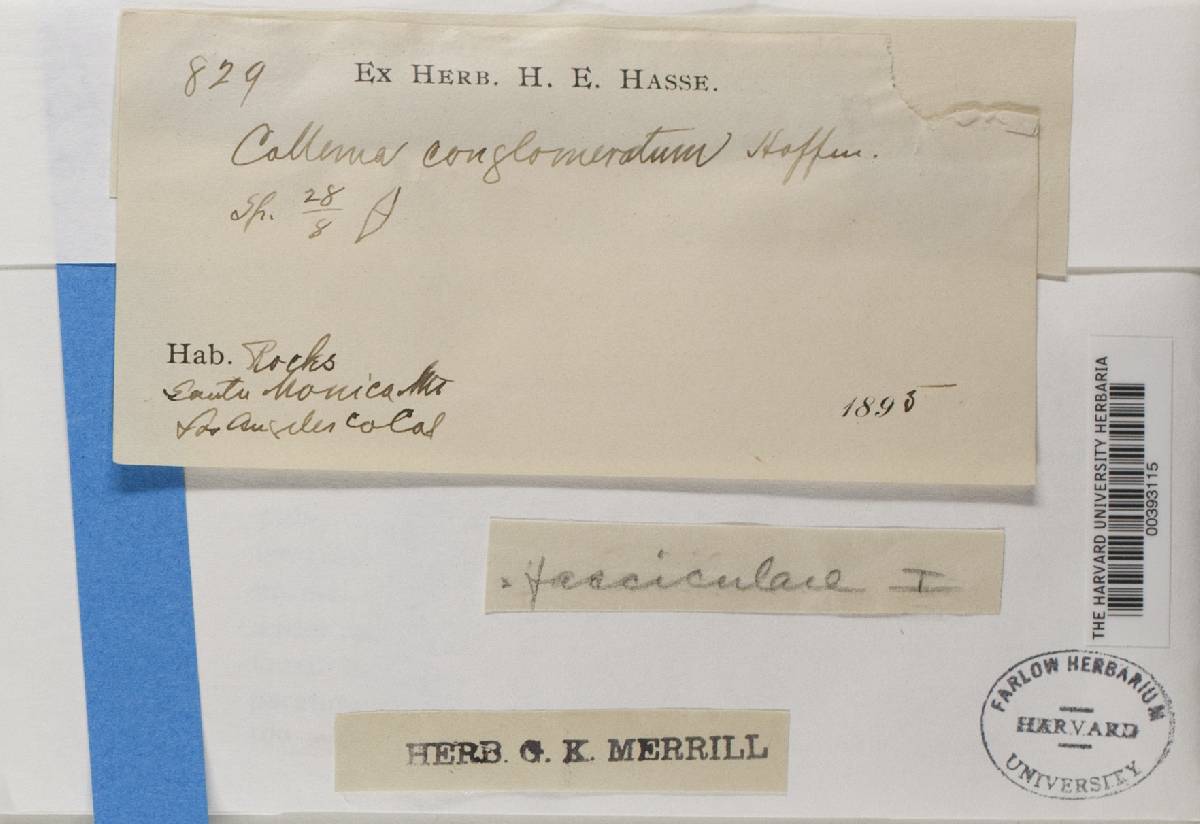 829 Ex Herb. H. E. Hasse.
Collema conglomeratum Hoffm.
Sp. 28/8
Hab. Rocks
Santa Monica Mts
Los Angeles Co Cal
1895
fasciculare I
HERB. G. K. MERRILL
THE HARVARD UNIVERSITY HERBARIA
00393115
FARLOW HERBARIUM
HARVARD
UNIVERSITY